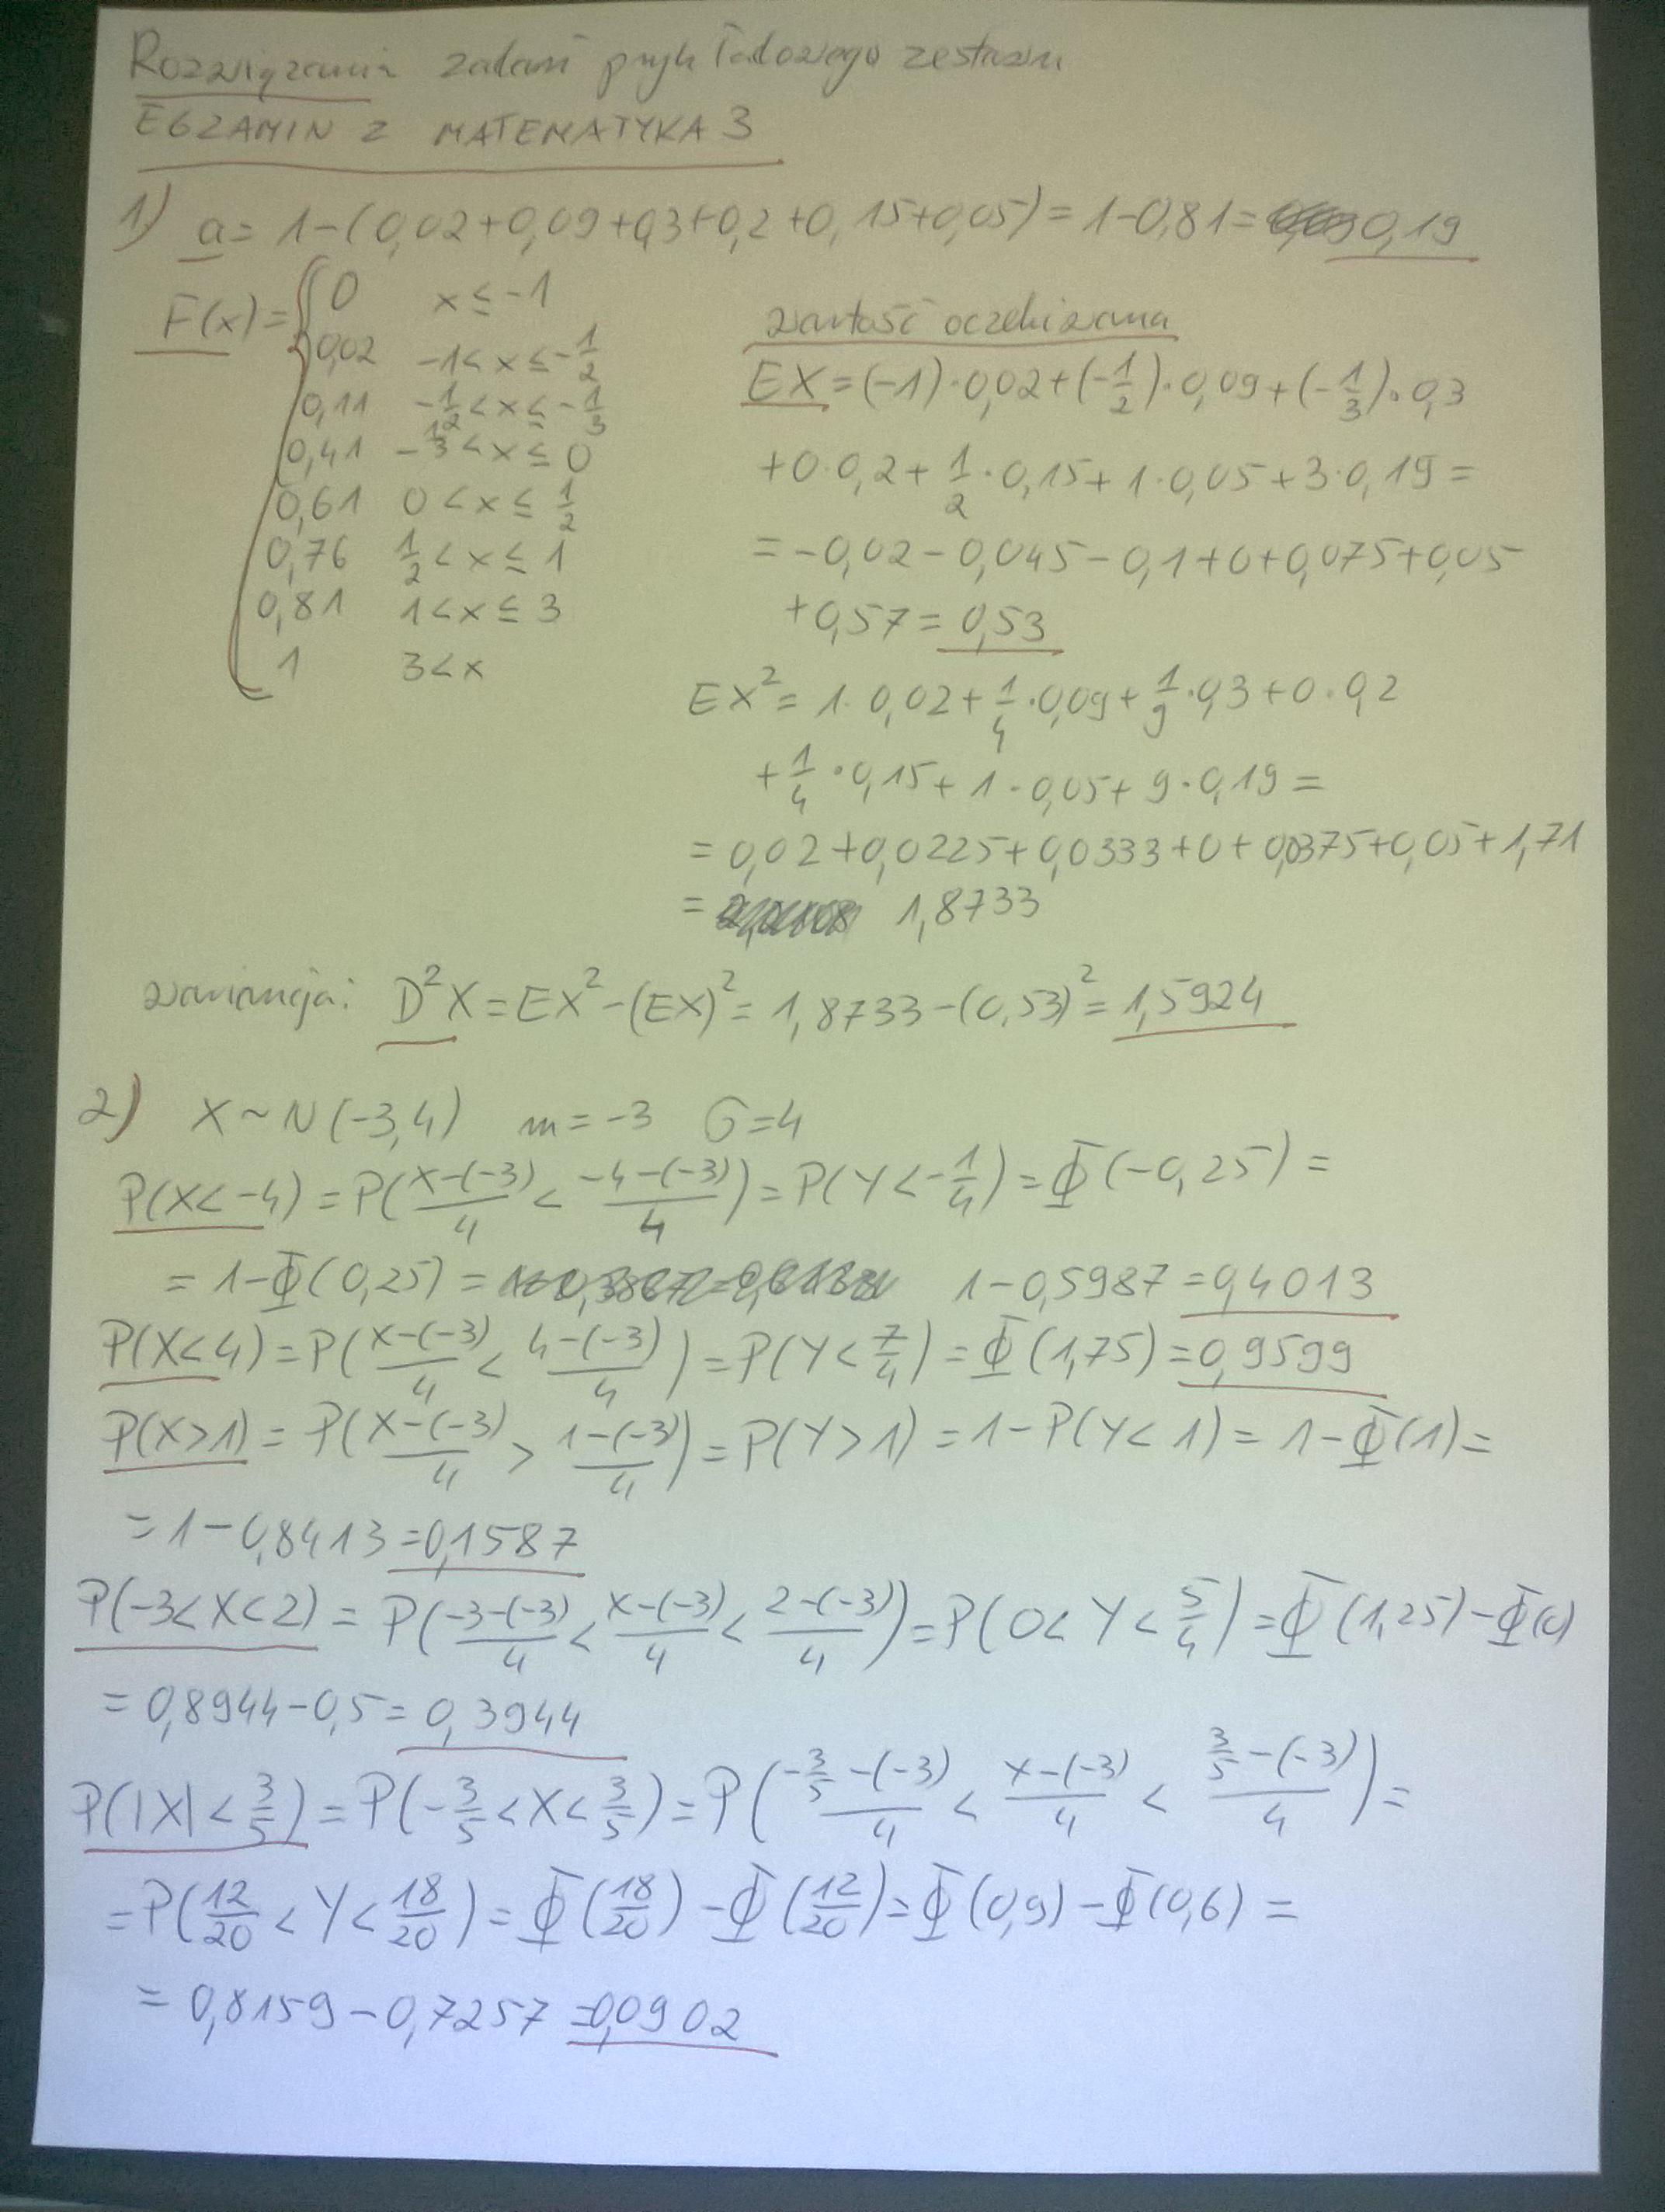 Rozwiązania zadań przykładowego zestawu
EGZAMIN Z MATEMATYKA 3
1) a = 1-(0,02+0,09+0,3+0,2+0,15+0,05) = 1-0,81 = 0,19
F(x) = { 0 x ≤ -1
0,02 -1 < x ≤ -1/2
0,11 -1/2 < x ≤ -1/3
0,41 -1/3 < x ≤ 0
0,61 0 < x ≤ 1/2
0,76 1/2 < x ≤ 1
0,81 1 < x ≤ 3
1 3 < x
wartość oczekiwana
EX = (-1)·0,02+(-1/2)·0,09+(-1/3)·0,3
+0·0,2+1/2·0,15+1·0,05+3·0,19 =
= -0,02-0,045-0,1+0+0,075+0,05
+0,57 = 0,53
EX² = 1·0,02+1/4·0,09+1/9·0,3+0·0,2
+1/4·0,15+1·0,05+9·0,19 =
= 0,02+0,0225+0,0333+0+0,0375+0,05+1,71
= 1,8733
wariancja: D²X = EX²-(EX)² = 1,8733-(0,53)² = 1,5924
2) X ~ N(-3,4) m = -3 σ = 4
P(X<-4) = P((X-(-3))/4 < (-4-(-3))/4) = P(Y<-1/4) = Φ(-0,25) =
= 1-Φ(0,25) = 1-0,5987 = 0,4013
P(X<4) = P((X-(-3))/4 < (4-(-3))/4) = P(Y<7/4) = Φ(1,75) = 0,9599
P(X>1) = P((X-(-3))/4 > (1-(-3))/4) = P(Y>1) = 1-P(Y<1) = 1-Φ(1) =
= 1-0,8413 = 0,1587
P(-3<X<2) = P((-3-(-3))/4 < (X-(-3))/4 < (2-(-3))/4) = P(0<Y<5/4) = Φ(1,25)-Φ(0)
= 0,8944-0,5 = 0,3944
P(|X|<3/5) = P(-3/5<X<3/5) = P((-3/5-(-3))/4 < (X-(-3))/4 < (3/5-(-3))/4) =
= P(12/20<Y<18/20) = Φ(18/20)-Φ(12/20) = Φ(0,9)-Φ(0,6) =
= 0,8159-0,7257 = 0,0902